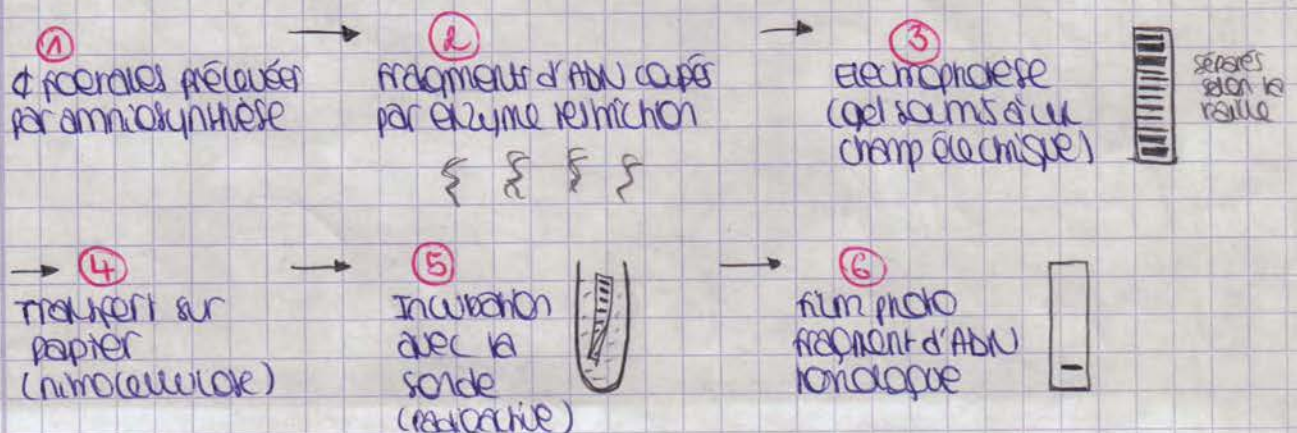 1
¢ foetales prélevées
par amniosynthèse
2
fragments d'ADN coupés
par enzyme restriction
3
Electrophorèse
(gel soumis à un
champ électrique)
séparés
selon la
taille
4
Transfert sur
papier
(nitrocellulose)
5
Incubation
avec la
sonde
(radioactive)
6
film photo
fragment d'ADN
homologue